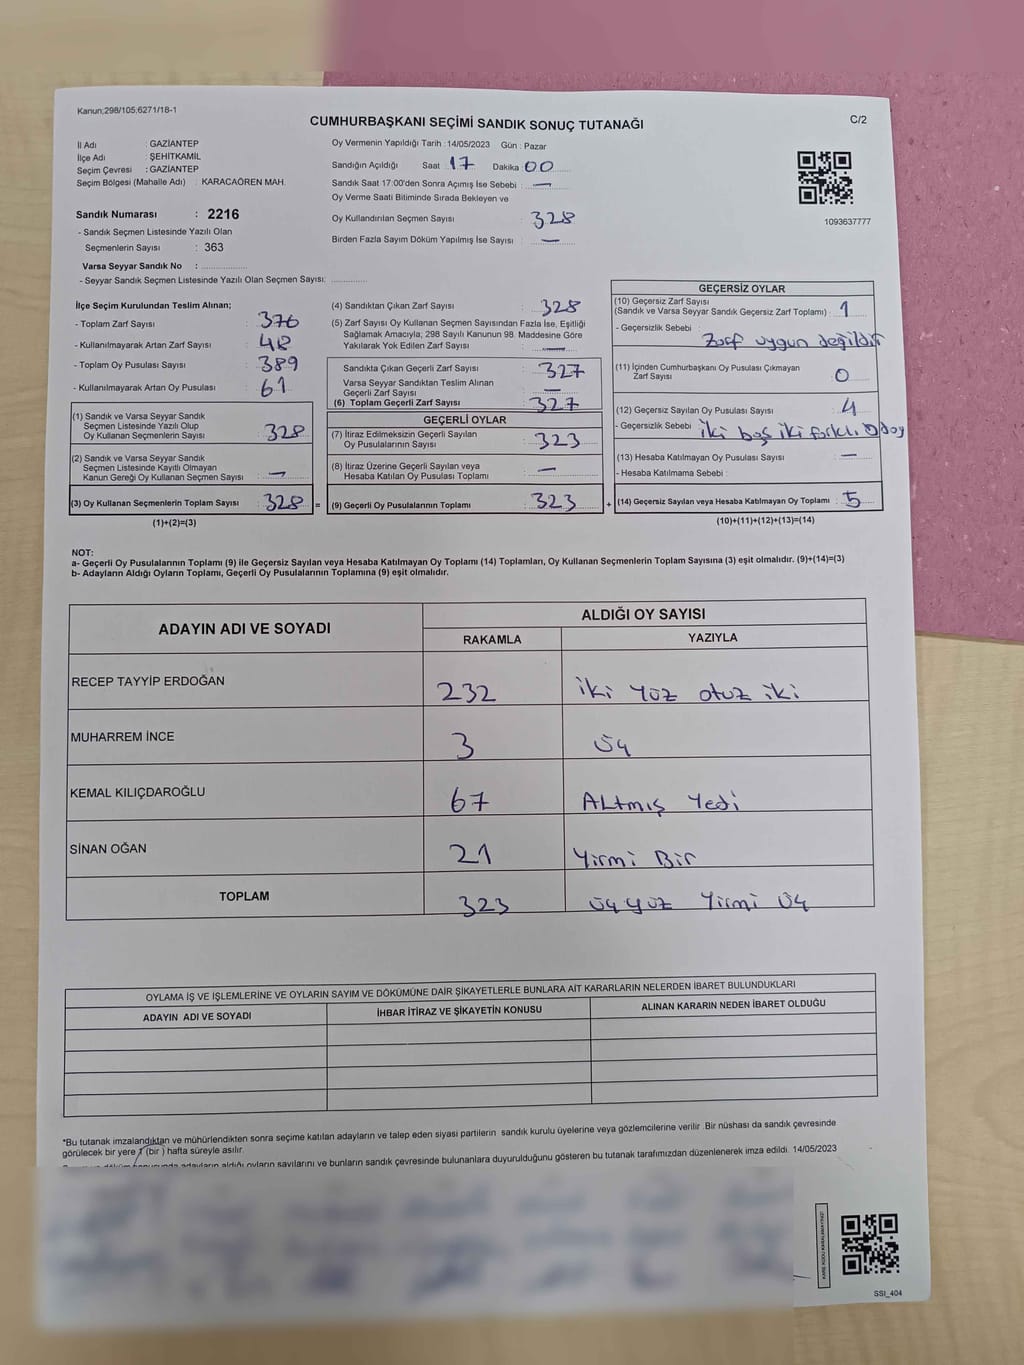 Kanun;298/105;6271/18-1
CUMHURBAŞKANI SEÇİMİ SANDIK SONUÇ TUTANAĞI
C/2
İl Adı : GAZİANTEP
İlçe Adı : ŞEHİTKAMİL
Seçim Çevresi : GAZİANTEP
Seçim Bölgesi (Mahalle Adı) : KARACAÖREN MAH.
Sandık Numarası : 2216
- Sandık Seçmen Listesinde Yazılı Olan
Seçmenlerin Sayısı : 363
Varsa Seyyar Sandık No : ..................
- Seyyar Sandık Seçmen Listesinde Yazılı Olan Seçmen Sayısı: .............
Oy Vermenin Yapıldığı Tarih : 14/05/2023 Gün : Pazar
Sandığın Açıldığı Saat 17 Dakika 00
Sandık Saat 17:00'den Sonra Açımış İse Sebebi : —
Oy Verme Saati Bitiminde Sırada Bekleyen ve
Oy Kullandırılan Seçmen Sayısı : 328
Birden Fazla Sayım Döküm Yapılmış İse Sayısı : —
1093637777
İlçe Seçim Kurulundan Teslim Alınan;
- Toplam Zarf Sayısı : 376
- Kullanılmayarak Artan Zarf Sayısı : 48
- Toplam Oy Pusulası Sayısı : 389
- Kullanılmayarak Artan Oy Pusulası : 61
(1) Sandık ve Varsa Seyyar Sandık
Seçmen Listesinde Yazılı Olup
Oy Kullanan Seçmenlerin Sayısı : 328
(2) Sandık ve Varsa Seyyar Sandık
Seçmen Listesinde Kayıtlı Olmayan
Kanun Gereği Oy Kullanan Seçmen Sayısı : —
(3) Oy Kullanan Seçmenlerin Toplam Sayısı : 328 =
(1)+(2)=(3)
(4) Sandıktan Çıkan Zarf Sayısı : 328
(5) Zarf Sayısı Oy Kullanan Seçmen Sayısından Fazla İse, Eşitliği
Sağlamak Amacıyla; 298 Sayılı Kanunun 98. Maddesine Göre
Yakılarak Yok Edilen Zarf Sayısı : —
Sandıkta Çıkan Geçerli Zarf Sayısı : 327
Varsa Seyyar Sandıktan Teslim Alınan
Geçerli Zarf Sayısı : —
(6) Toplam Geçerli Zarf Sayısı : 327
GEÇERLİ OYLAR
(7) İtiraz Edilmeksizin Geçerli Sayılan
Oy Pusulalarının Sayısı : 323
(8) İtiraz Üzerine Geçerli Sayılan veya
Hesaba Katılan Oy Pusulası Toplamı : —
(9) Geçerli Oy Pusulalarının Toplamı : 323 +
GEÇERSİZ OYLAR
(10) Geçersiz Zarf Sayısı
(Sandık ve Varsa Seyyar Sandık Geçersiz Zarf Toplamı) : 1
- Geçersizlik Sebebi :
Zarf uygun değildir
(11) İçinden Cumhurbaşkanı Oy Pusulası Çıkmayan
Zarf Sayısı : 0
(12) Geçersiz Sayılan Oy Pusulası Sayısı : 4
- Geçersizlik Sebebi : iki baş iki farklı aday
(13) Hesaba Katılmayan Oy Pusulası Sayısı : —
- Hesaba Katılmama Sebebi :
(14) Geçersiz Sayılan veya Hesaba Katılmayan Oy Toplamı : 5
(10)+(11)+(12)+(13)=(14)
NOT:
a- Geçerli Oy Pusulalarının Toplamı (9) ile Geçersiz Sayılan veya Hesaba Katılmayan Oy Toplamı (14) Toplamları, Oy Kullanan Seçmenlerin Toplam Sayısına (3) eşit olmalıdır. (9)+(14)=(3)
b- Adayların Aldığı Oyların Toplamı, Geçerli Oy Pusulalarının Toplamına (9) eşit olmalıdır.
ADAYIN ADI VE SOYADI
ALDIĞI OY SAYISI
RAKAMLA YAZIYLA
RECEP TAYYİP ERDOĞAN 232 iki yüz otuz iki
MUHARREM İNCE 3 üç
KEMAL KILIÇDAROĞLU 67 ALtmış Yedi
SİNAN OĞAN 21 Yirmi Bir
TOPLAM 323 üçyüz Yirmi üç
OYLAMA İŞ VE İŞLEMLERİNE VE OYLARIN SAYIM VE DÖKÜMÜNE DAİR ŞİKAYETLERLE BUNLARA AİT KARARLARIN NELERDEN İBARET BULUNDUKLARI
ADAYIN ADI VE SOYADI İHBAR İTİRAZ VE ŞİKAYETİN KONUSU ALINAN KARARIN NEDEN İBARET OLDUĞU
*Bu tutanak imzalandıktan ve mühürlendikten sonra seçime katılan adayların ve talep eden siyasi partilerin sandık kurulu üyelerine veya gözlemcilerine verilir .Bir nüshası da sandık çevresinde
görülecek bir yere 1 (bir ) hafta süreyle asılır.
adayların aldığı oyların sayılarını ve bunların sandık çevresinde bulunanlara duyurulduğunu gösteren bu tutanak tarafımızdan düzenlenerek imza edildi. 14/05/2023
SSI_404